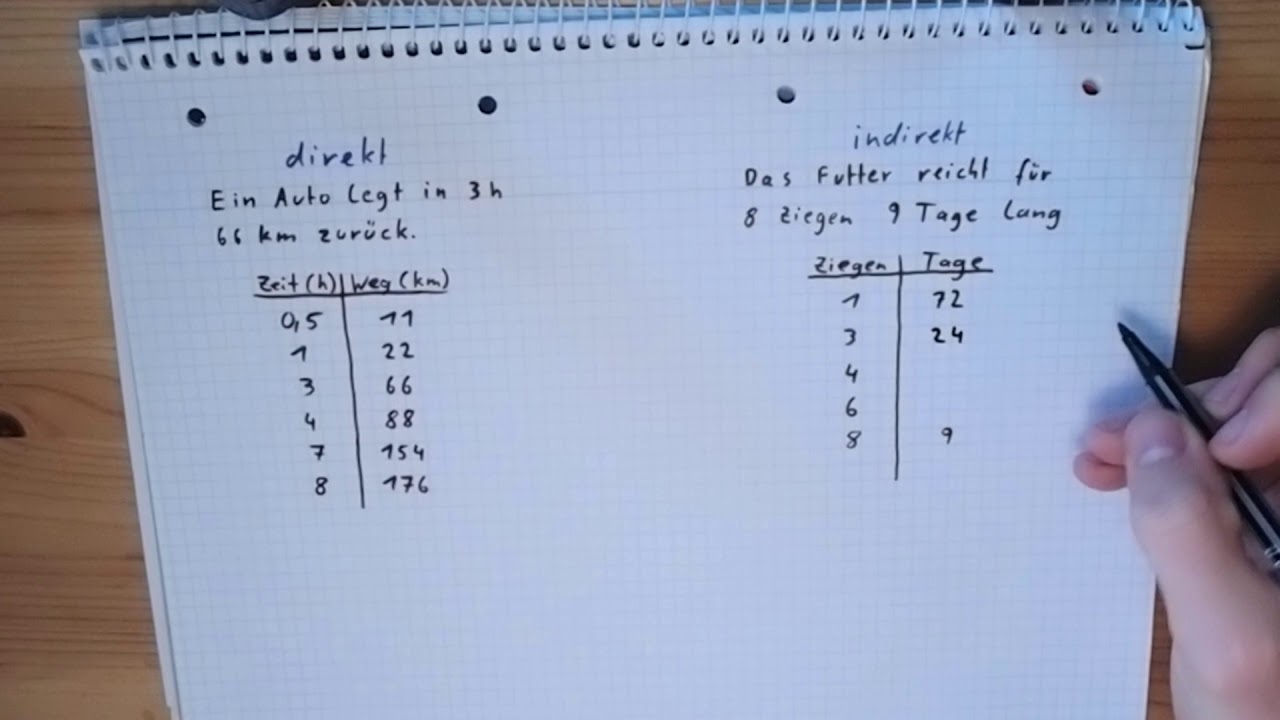 direkt
Ein Auto legt in 3h
66 km zurück.
Zeit (h) Weg (km)
0,5 11
1 22
3 66
4 88
7 154
8 176
indirekt
Das Futter reicht für
8 Ziegen 9 Tage lang
Ziegen Tage
1 72
3 24
4
6
8 9